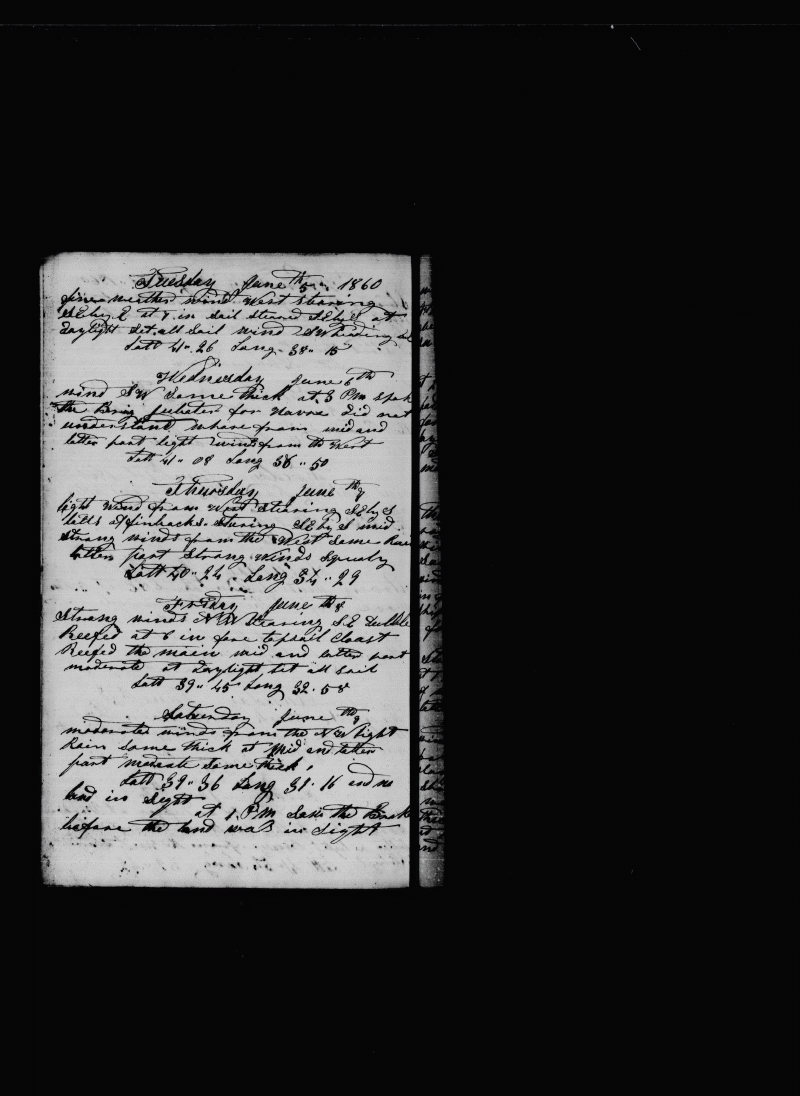 Tuesday June 5th 1860
fine weather wind West Stearing
SE by E at 7 in Sail steared SE by S at
daylight Set all Sail wind SW heading
Latt 41" 26 Long 38" 15
Wednesday June 6th
wind SW Some thick at 3 PM spok
the Brig Jubater for Havre did not
understand whare from mid and
latter part light winds from the West
Latt 41" 08 Long 36" 50
Thursday June th 7
light Wind from West Stearing SE by S
lots of finbacks Stearing SE by S mid
Strong winds from the West Some Rain
latter part Strong Winds Squaly
Latt 40" 24 Long 34" 29
Friday June th 8
Strong winds NW Stearing SE duble
Reefed at 6 in fore topsail Cloast
Reefed the main mid and latter part
moderate at daylight set all sail
Latt 39" 45 Long 32" 58
Saturday June th 9
moderate winds from the NW light
Rain Some thick at Mid and latter
part moderate Some thick
Latt 39" 36 Long 31" 16 and no
land in Sight
at 1 PM Saw the
before the land was in Sight